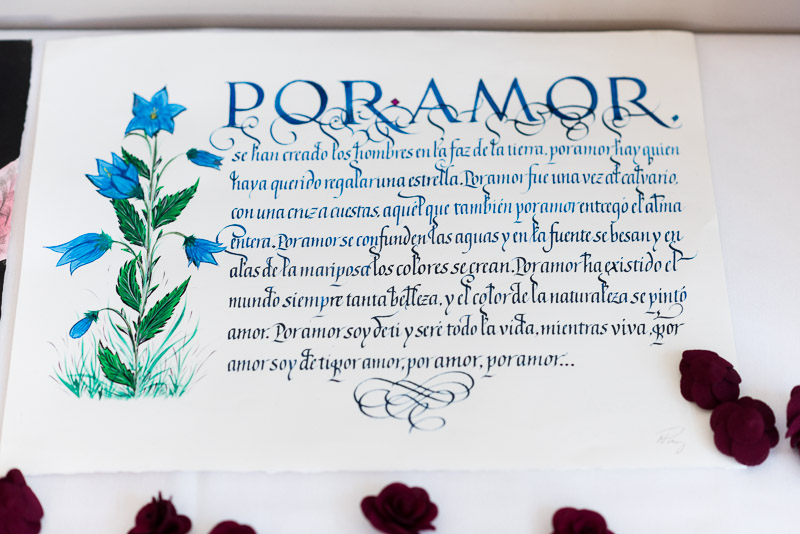 POR·AMOR.
se han creado los hombres en la faz de la tierra, por amor hay quien
haya querido regalar una estrella. Por amor fue una vez al calvario,
con una cruz a cuestas, aquel que también por amor entregó el alma
entera. Por amor se confunden las aguas y en la fuente se besan y en
alas de la mariposa los colores se crean. Por amor ha existido el
mundo siempre tanta belleza, y el color de la naturaleza se pintó
amor. Por amor soy de ti y seré todo la vida, mientras viva, por
amor soy de ti, por amor, por amor, por amor...